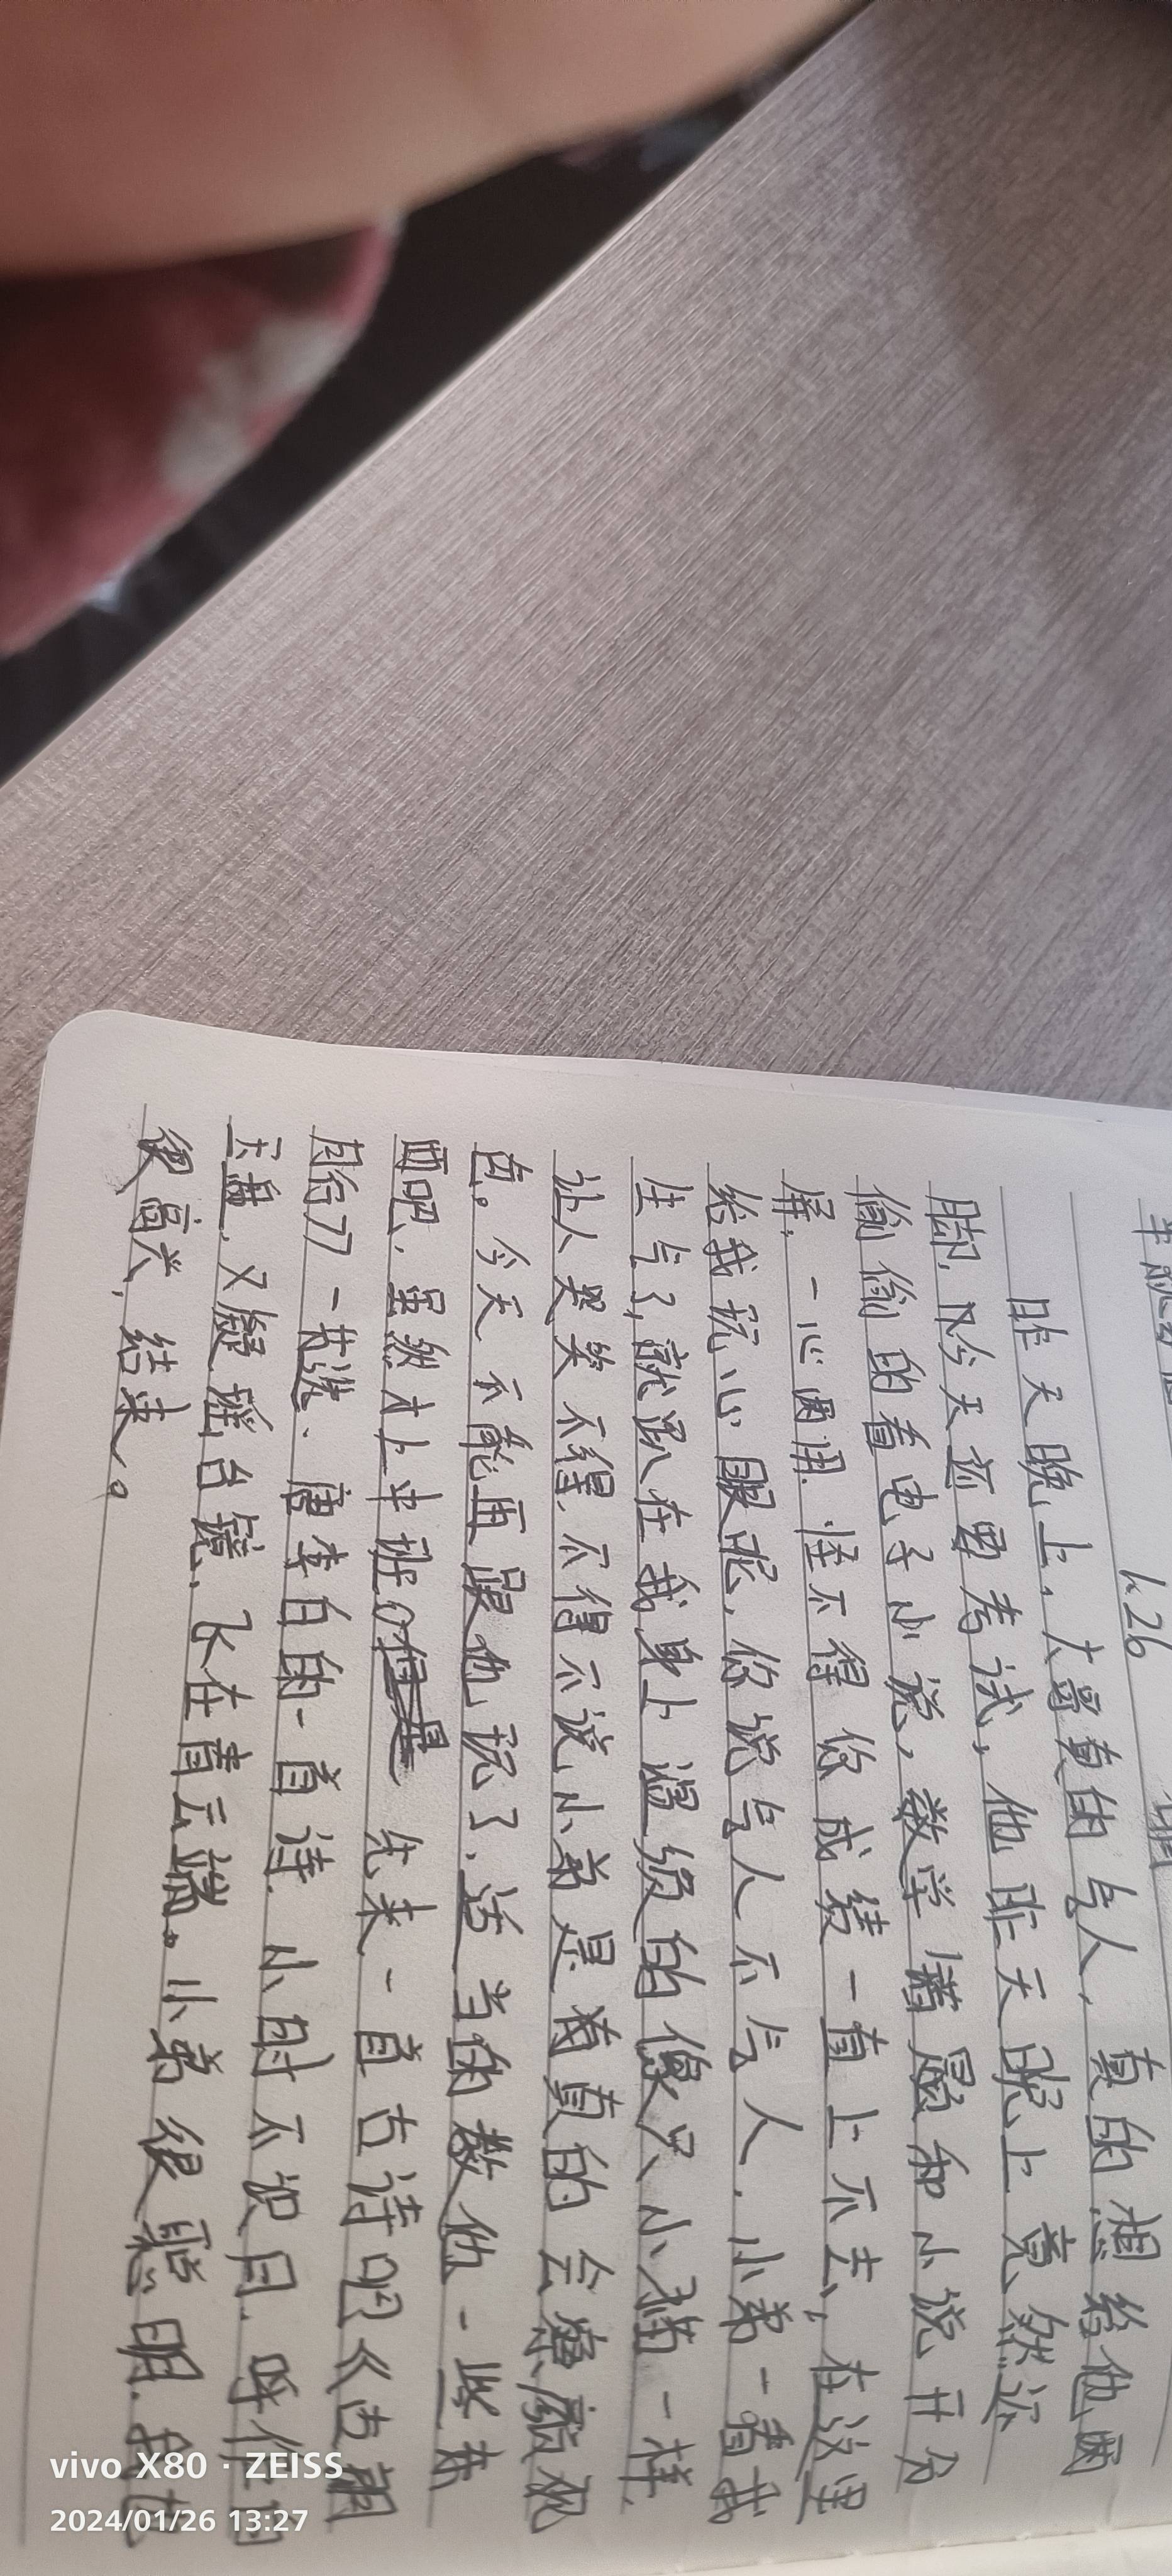 1.26
昨天晚上,大哥真的气人,真的想给他两
脚,从今天还要考试,他昨天晚上竟然还
偷偷的看电子小说,数学 和小说开分
屏,一心两用,怪不得你成绩一直上不去,在这里
给我玩心眼呢,你说气人不气人,小弟一看我
生气了,就趴在我身上 的像只小猫一样,
让人哭笑不得,不得不说小弟是有真的会察颜观
色。今天不能再跟他玩了,适当的教他一些东
西吧,虽然才上中班 先来一首古诗吧《古朗
月行》 唐李白的一首诗,小时不识月,呼作白
玉盘,又疑瑶台镜,飞在青云端。小弟很聪明,我也
很高兴,结束。
vivo X80 · ZEISS
2024/01/26 13:27